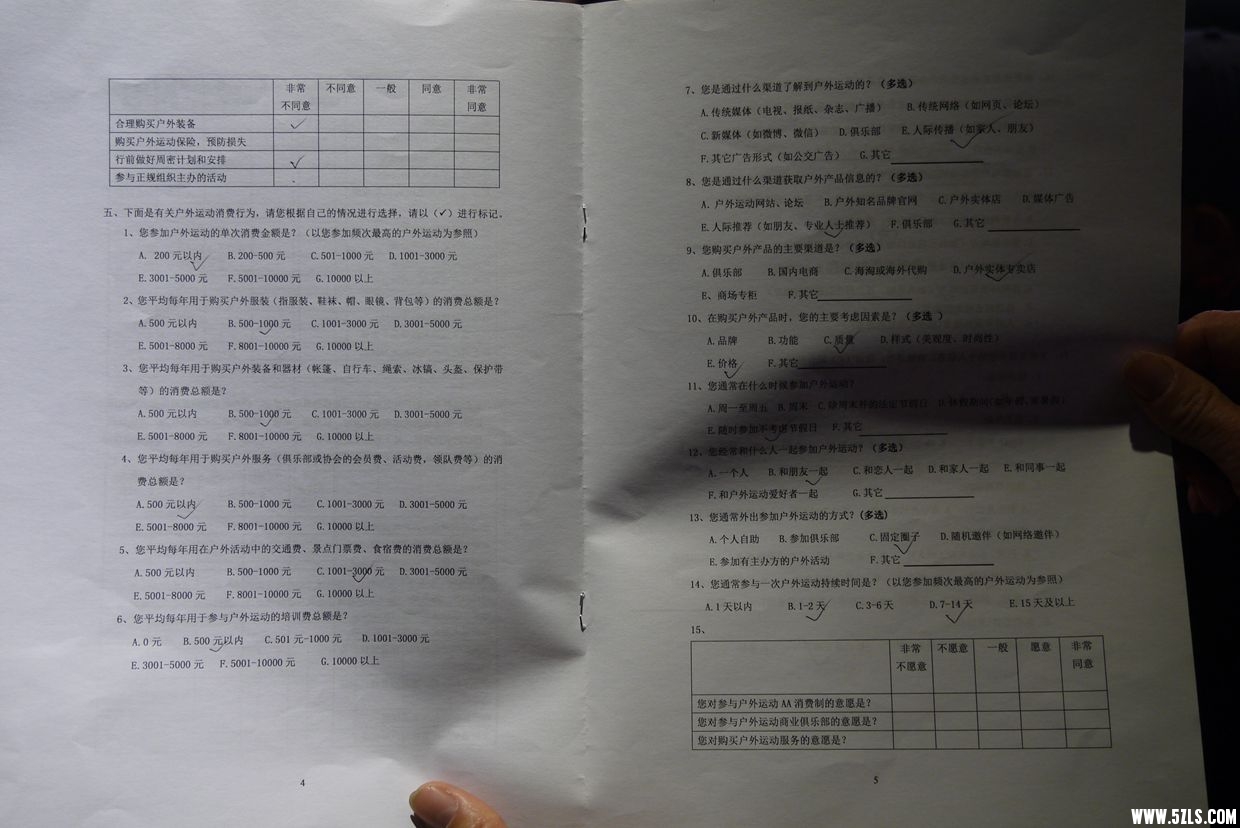 非常 不同意 一般 同意 非常
不同意 同意
合理购买户外装备 ✓
购买户外运动保险,预防损失
行前做好周密计划和安排 ✓
参与正规组织主办的活动
五、下面是有关户外运动消费行为,请您根据自己的情况进行选择,请以(✓)进行标记。
1、您参加户外运动的单次消费金额是?(以您参加频次最高的户外运动为参照)
A. 200元以内 B.200-500元 C.501-1000元 D.1001-3000元
E.3001-5000元 F.5001-10000元 G.10000以上
2、您平均每年用于购买户外服装(指服装、鞋袜、帽、眼镜、背包等)的消费总额是?
A.500元以内 B.500-1000元 C.1001-3000元 D.3001-5000元
E.5001-8000元 F.8001-10000元 G.10000以上
3、您平均每年用于购买户外装备和器材(帐篷、自行车、绳索、冰镐、头盔、保护带
等)的消费总额是?
A.500元以内 B.500-1000元 C.1001-3000元 D.3001-5000元
E.5001-8000元 F.8001-10000元 G.10000以上
4、您平均每年用于购买户外服务(俱乐部或协会的会员费、活动费,领队费等)的消
费总额是?
A.500元以内 B.500-1000元 C.1001-3000元 D.3001-5000元
E.5001-8000元 F.8001-10000元 G.10000以上
5、您平均每年用在户外活动中的交通费、景点门票费、食宿费的消费总额是?
A.500元以内 B.500-1000元 C.1001-3000元 D.3001-5000元
E.5001-8000元 F.8001-10000元 G.10000以上
6、您平均每年用于参与户外运动的培训费总额是?
A.0元 B.500元以内 C.501元-1000元 D.1001-3000元
E.3001-5000元 F.5001-10000元 G.10000以上
4
7、您是通过什么渠道了解到户外运动的?(多选)
A.传统媒体(电视、报纸、杂志、广播) B.传统网络(如网页、论坛)
C.新媒体(如微博、微信) D.俱乐部 E.人际传播(如家人、朋友)
F.其它广告形式(如公交广告) G.其它
8、您是通过什么渠道获取户外产品信息的?(多选)
A.户外运动网站、论坛 B.户外知名品牌官网 C.户外实体店 D.媒体广告
E.人际推荐(如朋友、专业人士推荐) F.俱乐部 G.其它
9、您购买户外产品的主要渠道是?(多选)
A.俱乐部 B.国内电商 C.海淘或海外代购 D.户外实体专卖店
E、商场专柜 F.其它
10、在购买户外产品时,您的主要考虑因素是?(多选 )
A.品牌 B.功能 C.质量 D.样式(美观度、时尚性)
E.价格 F.其它
11、您通常在什么时候参加户外运动?
A.周一至周五 B.周末 C.除周末外的法定节假日 D.休假期间(如年假、寒暑假)
E.随时参加不考虑节假日 F.其它
12、您经常和什么人一起参加户外运动?(多选)
A.一个人 B.和朋友一起 C.和恋人一起 D.和家人一起 E.和同事一起
F.和户外运动爱好者一起 G.其它
13、您通常外出参加户外运动的方式?(多选)
A.个人自助 B.参加俱乐部 C.固定圈子 D.随机邀伴(如网络邀伴)
E.参加有主办方的户外活动 F.其它
14、您通常参与一次户外运动持续时间是?(以您参加频次最高的户外运动为参照)
A.1天以内 B.1-2天 C.3-6天 D.7-14天 E.15天及以上
15、
非常 不愿意 一般 愿意 非常
不愿意 同意
您对参与户外运动AA消费制的意愿是?
您对参与户外运动商业俱乐部的意愿是?
您对购买户外运动服务的意愿是?
5
WWW.5ZLS.COM